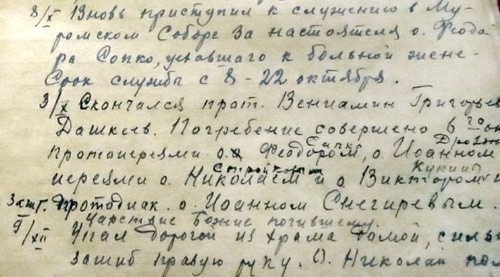 8/X Вновь приступил к служению в Му-
ромском Соборе за настоятеля о. Феодо-
ра Сопко, уехавшего к больной жене-
Срок службы с 8-22 октября.
3/X Скончался прот. Вениамин Григорьев
Дашкев. Погребение совершено 6го
протоиереями о. Феодором Сапко, о. Иоанном
иереями о. Николаем и о. Виктором
Зашт. протодиак. о. Иоанном Снегиревым.
Царствие Божие почившему.
9/XII Упал дорогой из храма домой, силь
зашиб правую руку. О. Николай